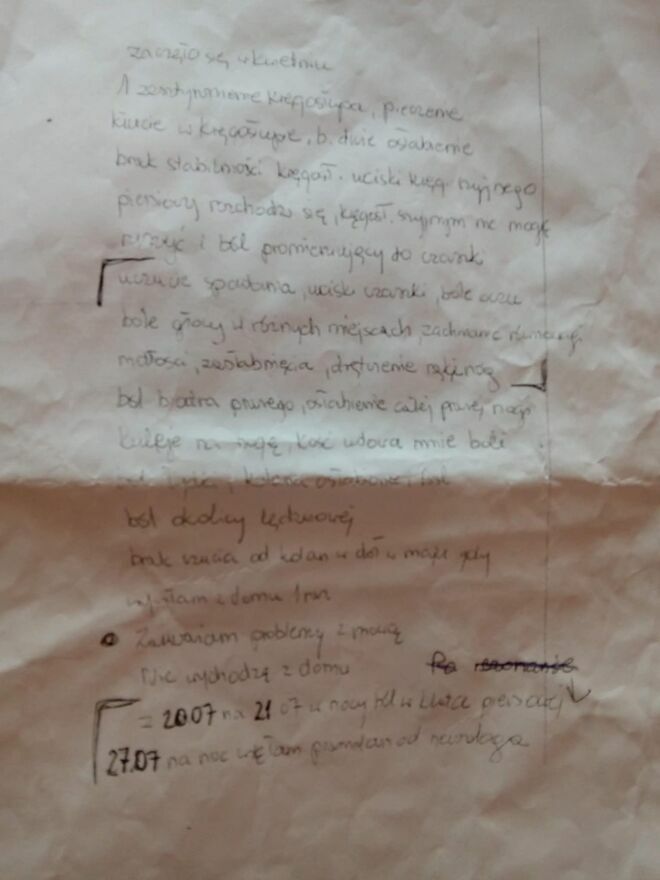 zaczęło się w kwietniu
1 zesztywnienie kręgosłupa, pieczenie
kłucie w kręgosłupie, b. duże osłabienie
brak stabilności kręgosł. uciski kręg. szyjnego
piersiowy rozchodzi się, kręgosł. szyjnym nie mogę
ruszyć i ból promieniujący do czaszki
uczucie spadania, ucisk czaszki, bóle oczu
bóle głowy w różnych miejscach, zachwianie równowagi
mdłości, zasłabnięcia, drętwienie ręki, nóg
ból biodra prawego, osłabienie całej prawej nogi
kuleję na nogę, kość udowa mnie boli
kolana osłabione, ból
ból okolicy lędźwiowej
brak czucia od kolan w dół w maju gdy
wyszłam z domu 1 raz
Zauważam problemy z mową
Nie wychodzę z domu
= 20 07 na 21 07 w nocy ból w klatce piersiowej
27.07 na noc wzięłam od neurologa